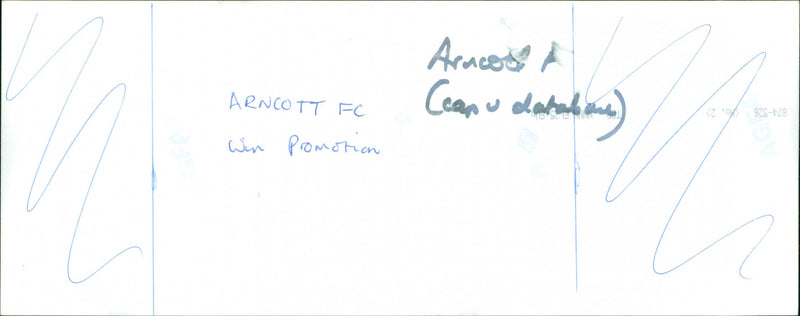 ARNCOTT FC
Win Promotion
Arncott A
(cap v database)